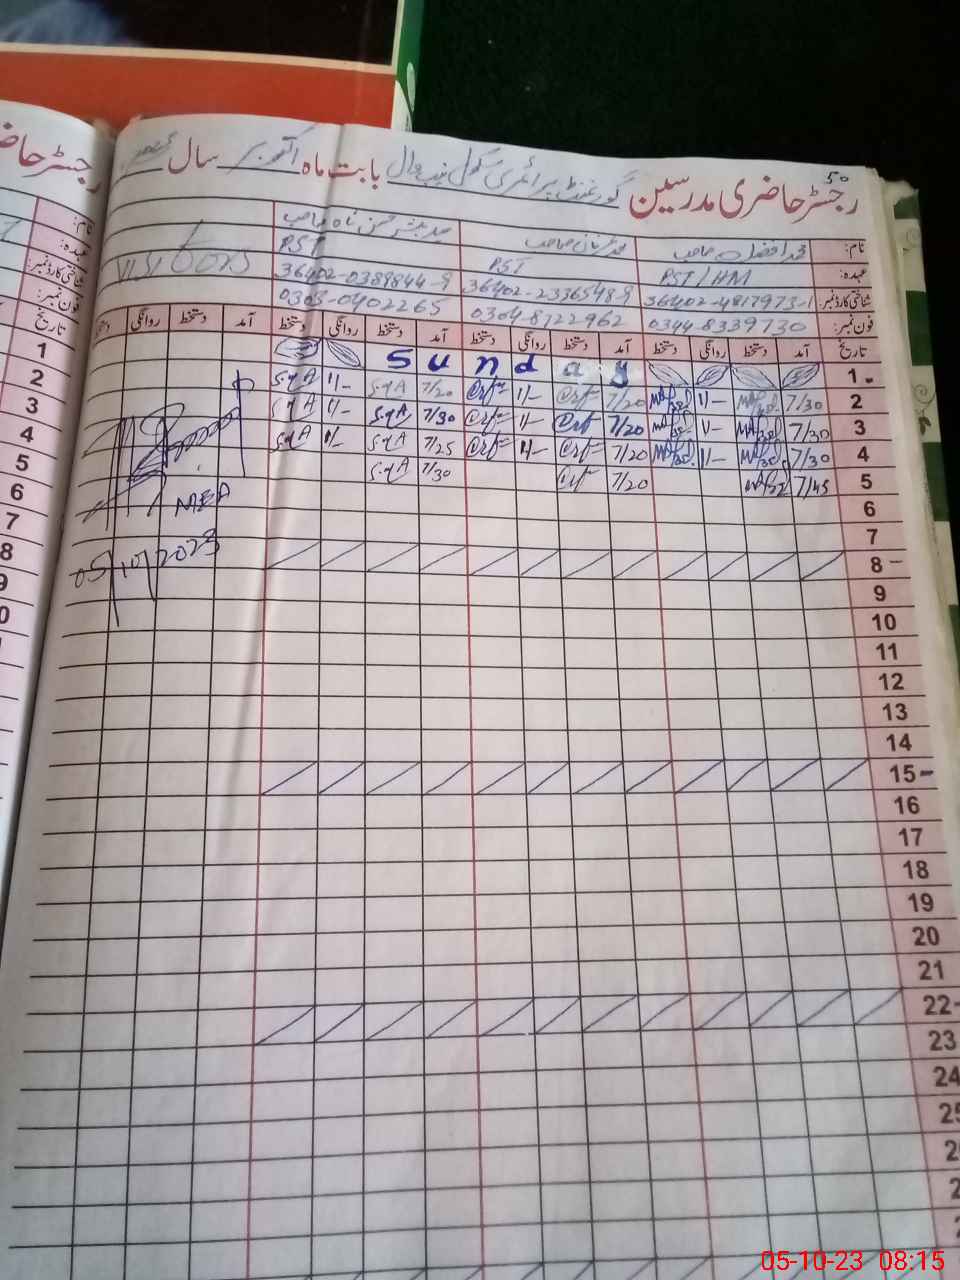 50
رجسٹر حاضری مدرسین گورنمنٹ پرائمری سکول بابت ماہ اکتوبر سال
نام: محمد افضل صاحب محمد عرفان صاحب سید مبشر حسن شاہ صاحب
عہدہ: PST/HM PST PST
شناختی کارڈ نمبر: 36402-4817973-1 36402-2336548-9 36402-0389844-9 Visitors
فون نمبر: 0344-8339730 0304-8722962 0303-0402265
تاریخ آمد دستخط روانگی دستخط آمد دستخط روانگی دستخط آمد دستخط روانگی دستخط آمد دستخط روانگی دستخط
1 Sunday
2 7/30 1/- 7/20 1/- 7/20 SqA 1/- SqA
3 7/30 1/- 7/20 1/- 7/30 SqA 1/- SqA
4 7/30 1/- 7/20 1/- 7/25 SqA 1/- SqA
5 7/45 7/20 7/30 SqA
6 MEA
7
8 05/10/2023
9
10
11
12
13
14
15
16
17
18
19
20
21
22
23
24
25
رجسٹر حاض
نام:
عہدہ:
شناختی کارڈ نمبر:
فون نمبر:
تاریخ
1
2
3
4
5
6
7
8
9
0
05-10-23 08:15